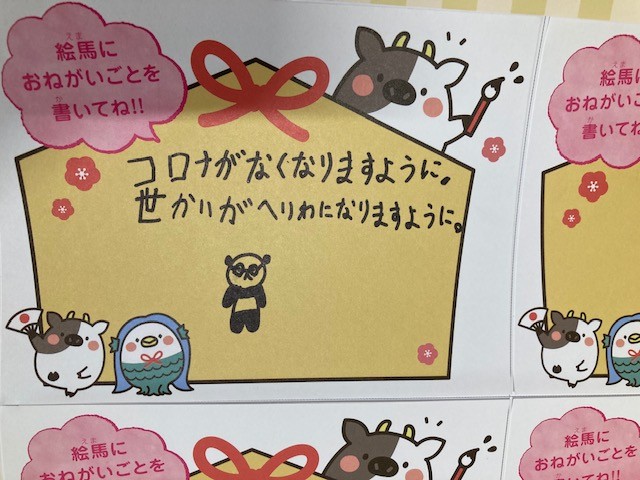 絵馬に
おねがいごとを
書いてね!!
コロナがなくなりますように。
世かいがへいわになりますように。
絵馬に
おねがいごとを
書いてね!!
絵馬に
おねがいごとを
絵馬に
おねがいごとを
書いてね!!